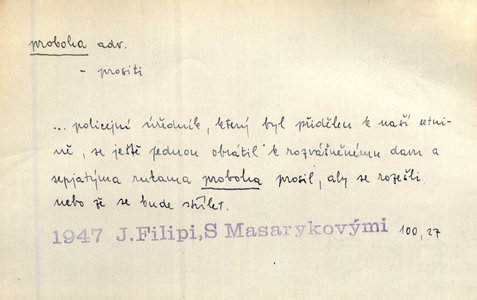 proboha adv.
- prositi
... policejní úředník, který byl přidělen k naší setni-
ně, se ještě jednou obrátil k rozvášněnému davu a
sepjatýma rukama proboha prosil, aby se rozešli
nebo že se bude střílet.
1947 J.Filipi,S Masarykovými 100,27